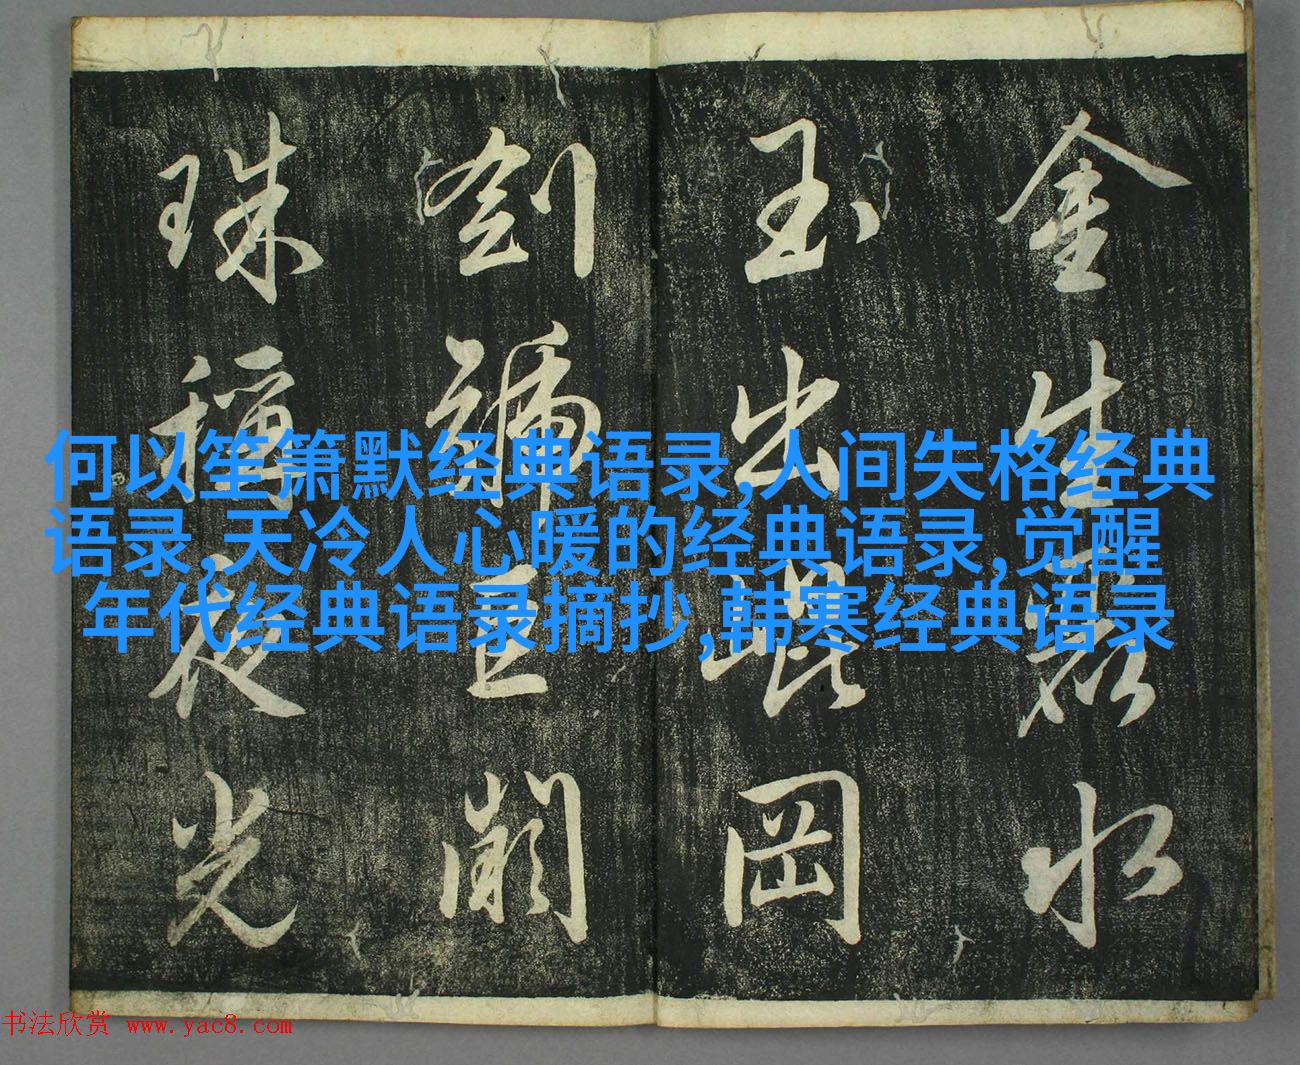 金生麗水
玉出崐岡
劍號巨闕
珠稱夜光
何以笙箫默经典语录,人间失格经典
语录,天冷人心暖的经典语录,觉醒
年代经典语录摘抄,韩寒经典语录
书法欣赏 www.yac8.com